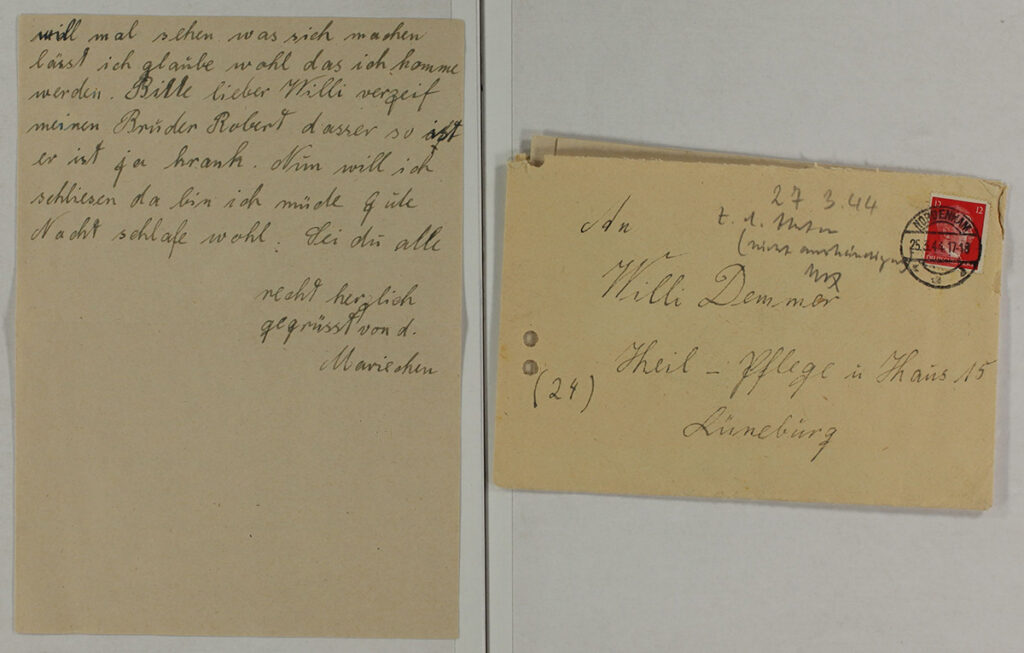 will mal sehen was sich machen
lässt ich glaube wohl das ich komme
werden. Bitte lieber Willi verzeif
meinen Bruder Robert dasser so ist
er ist ja krank. Nun will ich
schliesen da bin ich müde Gute
Nacht schlafe wohl. Sei du alle
recht herzlich
gegrüsst von d.
Mariechen
27.3.44
z. d. Akten
(nicht aushändigen)
An
Willi Demmer
Heil - Pflege u Haus 15
(24)
Lüneburg
NORDENHAM
25.3.44.17-18
12